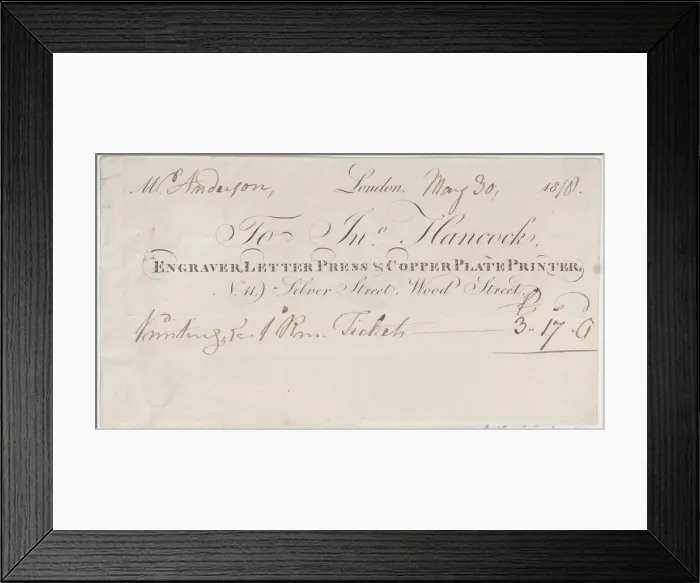 Mr. Anderson, London. May 30, 1818.
To Jno. Hancock,
ENGRAVER, LETTER PRESS & COPPER PLATE PRINTER,
N. 11, Silver Street, Wood Street.
£ s D
Printing, &c. 1 Rm. Tickets 3 .. 17 . 0